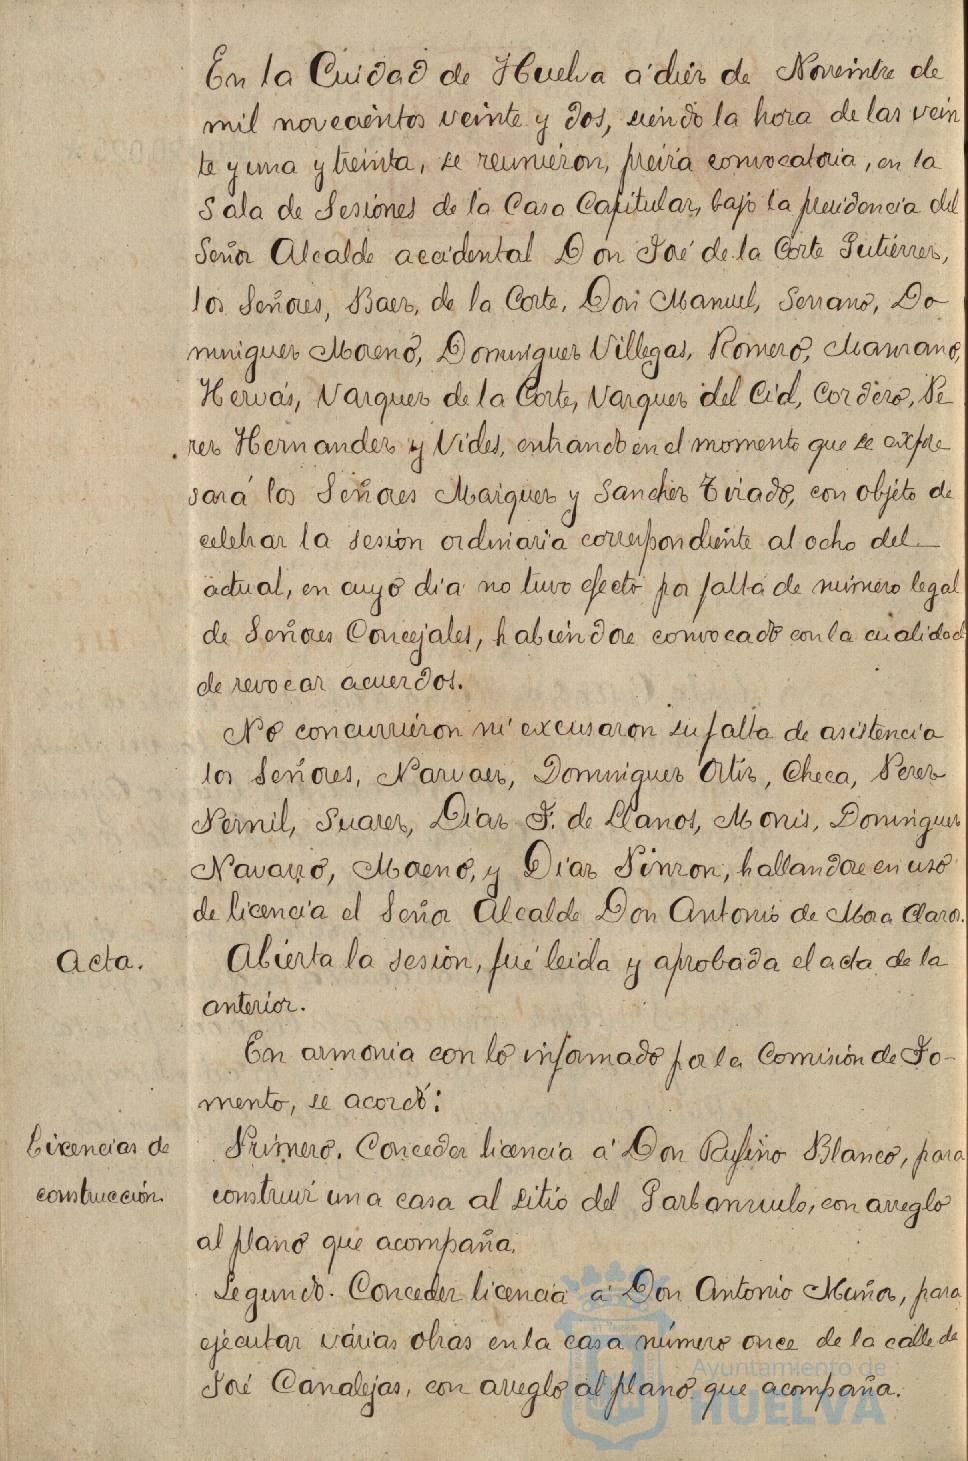 En la Cuidad de Huelva á diez de Noviembre de
mil novecientos veinte y dos, siendo la hora de las vein
te y una y treinta, se reunieron, previa convocatoria, en la
Sala de Sesiones de la Casa Capitular, bajo la presidencia del
Señor Alcalde accidental Don José de la Corte Gutiérrez,
los Señores, Baez, de la Corte, Don Manuel, Serrano, Do-
minguez Moreno, Dominguez Villegas, Romero, Manzano,
Hervás, Vazquez de la Corte, Vazquez del Cid, Cordero, Pe
rez Hernandez y Vides, entrando en el momento que se expre
sará los Señores Maiquez y Sanchez Tirado, con objeto de
celebrar la sesión ordinaria correspondiente al ocho del
actual, en cuyo dia no tuvo efecto por falta de número legal
de Señores Concejales, habiéndose convocado con la cualidad
de revocar acuerdos.
No concurrieron ni excusaron su falta de asistencia
los Señores, Narvaez, Dominguez Ortiz, Checa, Perez
Pernil, Suarez, Diaz F. de Llanos, Monis, Dominguez
Navarro, Moreno, y Diaz Pinzon, hallandose en uso
de licencia el Señor Alcalde Don Antonio de Mora Claros.
Acta. Abierta la sesión, fué leida y aprobada el acta de la
anterior.
En armonia con lo informado por la Comisión de Fo-
mento, se acordó:
Licencias de Primero. Conceder licencia á Don Rufino Blanco, para
construcción. construir una casa al sitio del Garbanzuelo, con arreglo
al plano que acompaña.
Segundo. Conceder licencia á Don Antonio Muñoz, para
ejecutar várias obras en la casa número once de la calle de
José Canalejas, con arreglo al plano que acompaña.
Ayuntamiento de
HUELVA